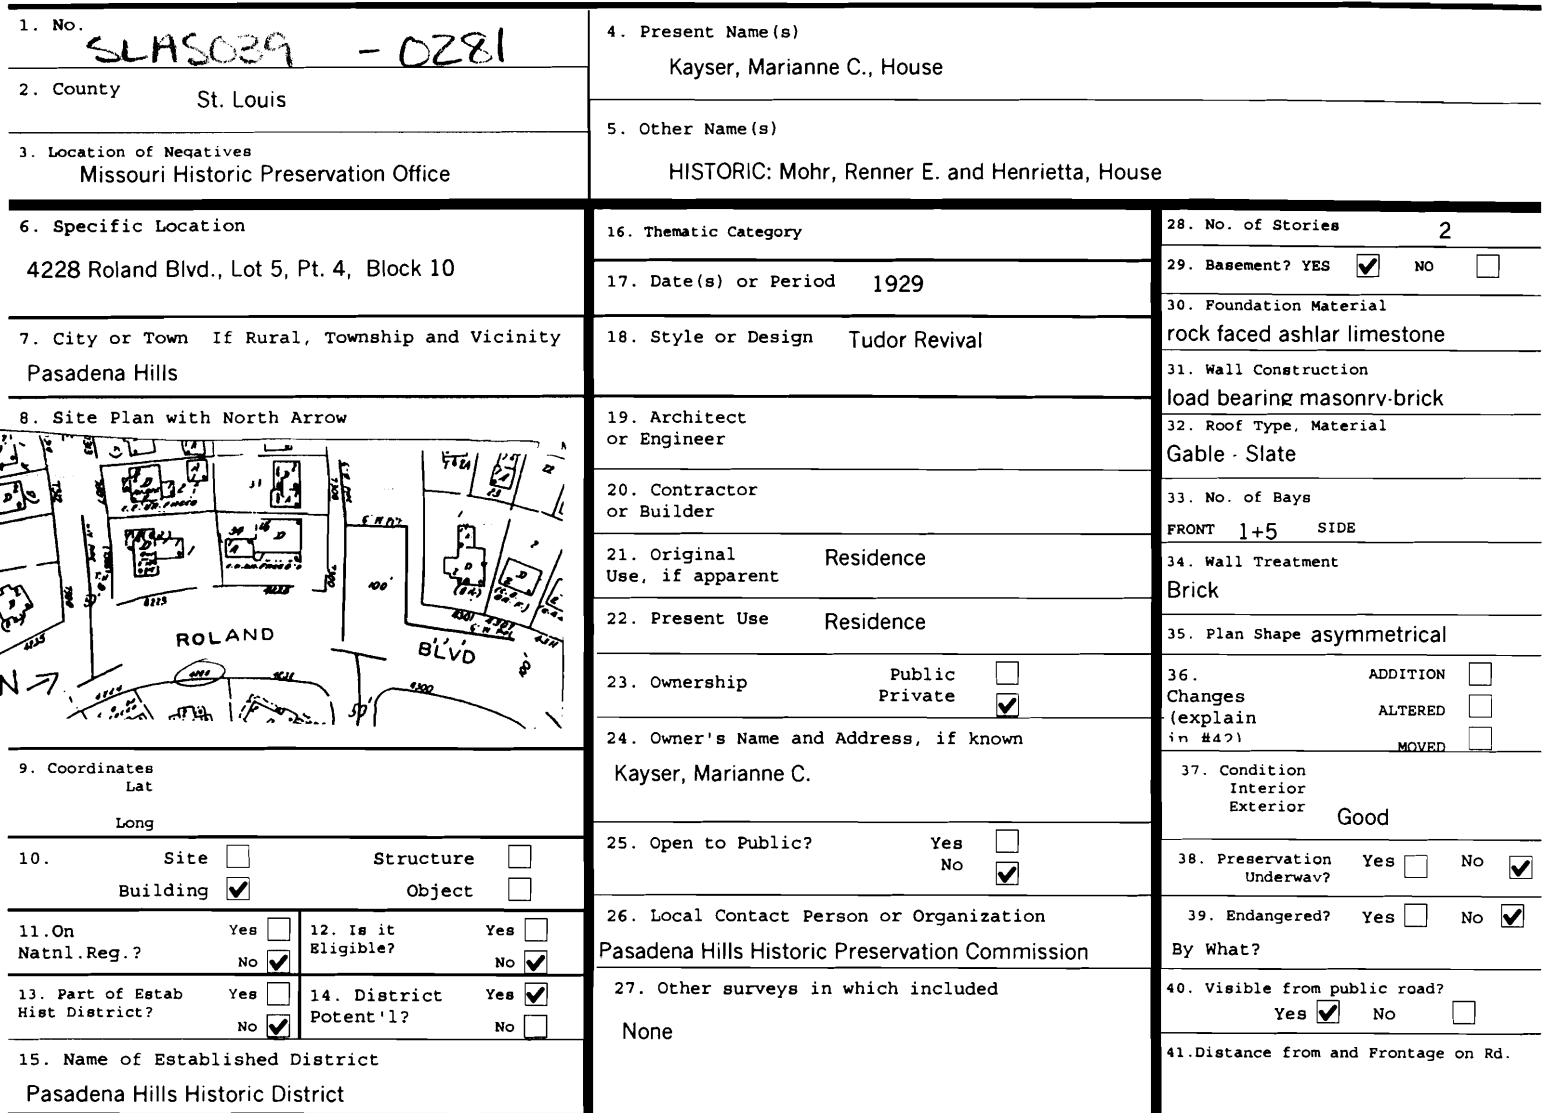 1. No.
SLAS039 - 0281
2. County
St. Louis
3. Location of Negatives
Missouri Historic Preservation Office
4. Present Name(s)
Kayser, Marianne C., House
5. Other Name(s)
HISTORIC: Mohr, Renner E. and Henrietta, House
6. Specific Location
4228 Roland Blvd., Lot 5, Pt. 4, Block 10
7. City or Town If Rural, Township and Vicinity
Pasadena Hills
8. Site Plan with North Arrow
ROLAND
BLVD
N
100'
50'
4300
9. Coordinates
Lat
Long
10. Site Structure
Building ✔ Object
11.On Yes
Natnl.Reg.? No ✔
12. Is it Yes
Eligible? No ✔
13. Part of Estab Yes
Hist District? No ✔
14. District Yes ✔
Potent'l? No
15. Name of Established District
Pasadena Hills Historic District
16. Thematic Category
17. Date(s) or Period 1929
18. Style or Design Tudor Revival
19. Architect
or Engineer
20. Contractor
or Builder
21. Original Residence
Use, if apparent
22. Present Use Residence
23. Ownership Public
Private ✔
24. Owner's Name and Address, if known
Kayser, Marianne C.
25. Open to Public? Yes
No ✔
26. Local Contact Person or Organization
Pasadena Hills Historic Preservation Commission
27. Other surveys in which included
None
28. No. of Stories 2
29. Basement? YES ✔ NO
30. Foundation Material
rock faced ashlar limestone
31. Wall Construction
load bearing masonry-brick
32. Roof Type, Material
Gable - Slate
33. No. of Bays
FRONT 1+5 SIDE
34. Wall Treatment
Brick
35. Plan Shape asymmetrical
36. ADDITION
Changes
(explain ALTERED
in #42) MOVED
37. Condition
Interior
Exterior Good
38. Preservation Yes No ✔
Underway?
39. Endangered? Yes No ✔
By What?
40. Visible from public road?
Yes ✔ No
41.Distance from and Frontage on Rd.